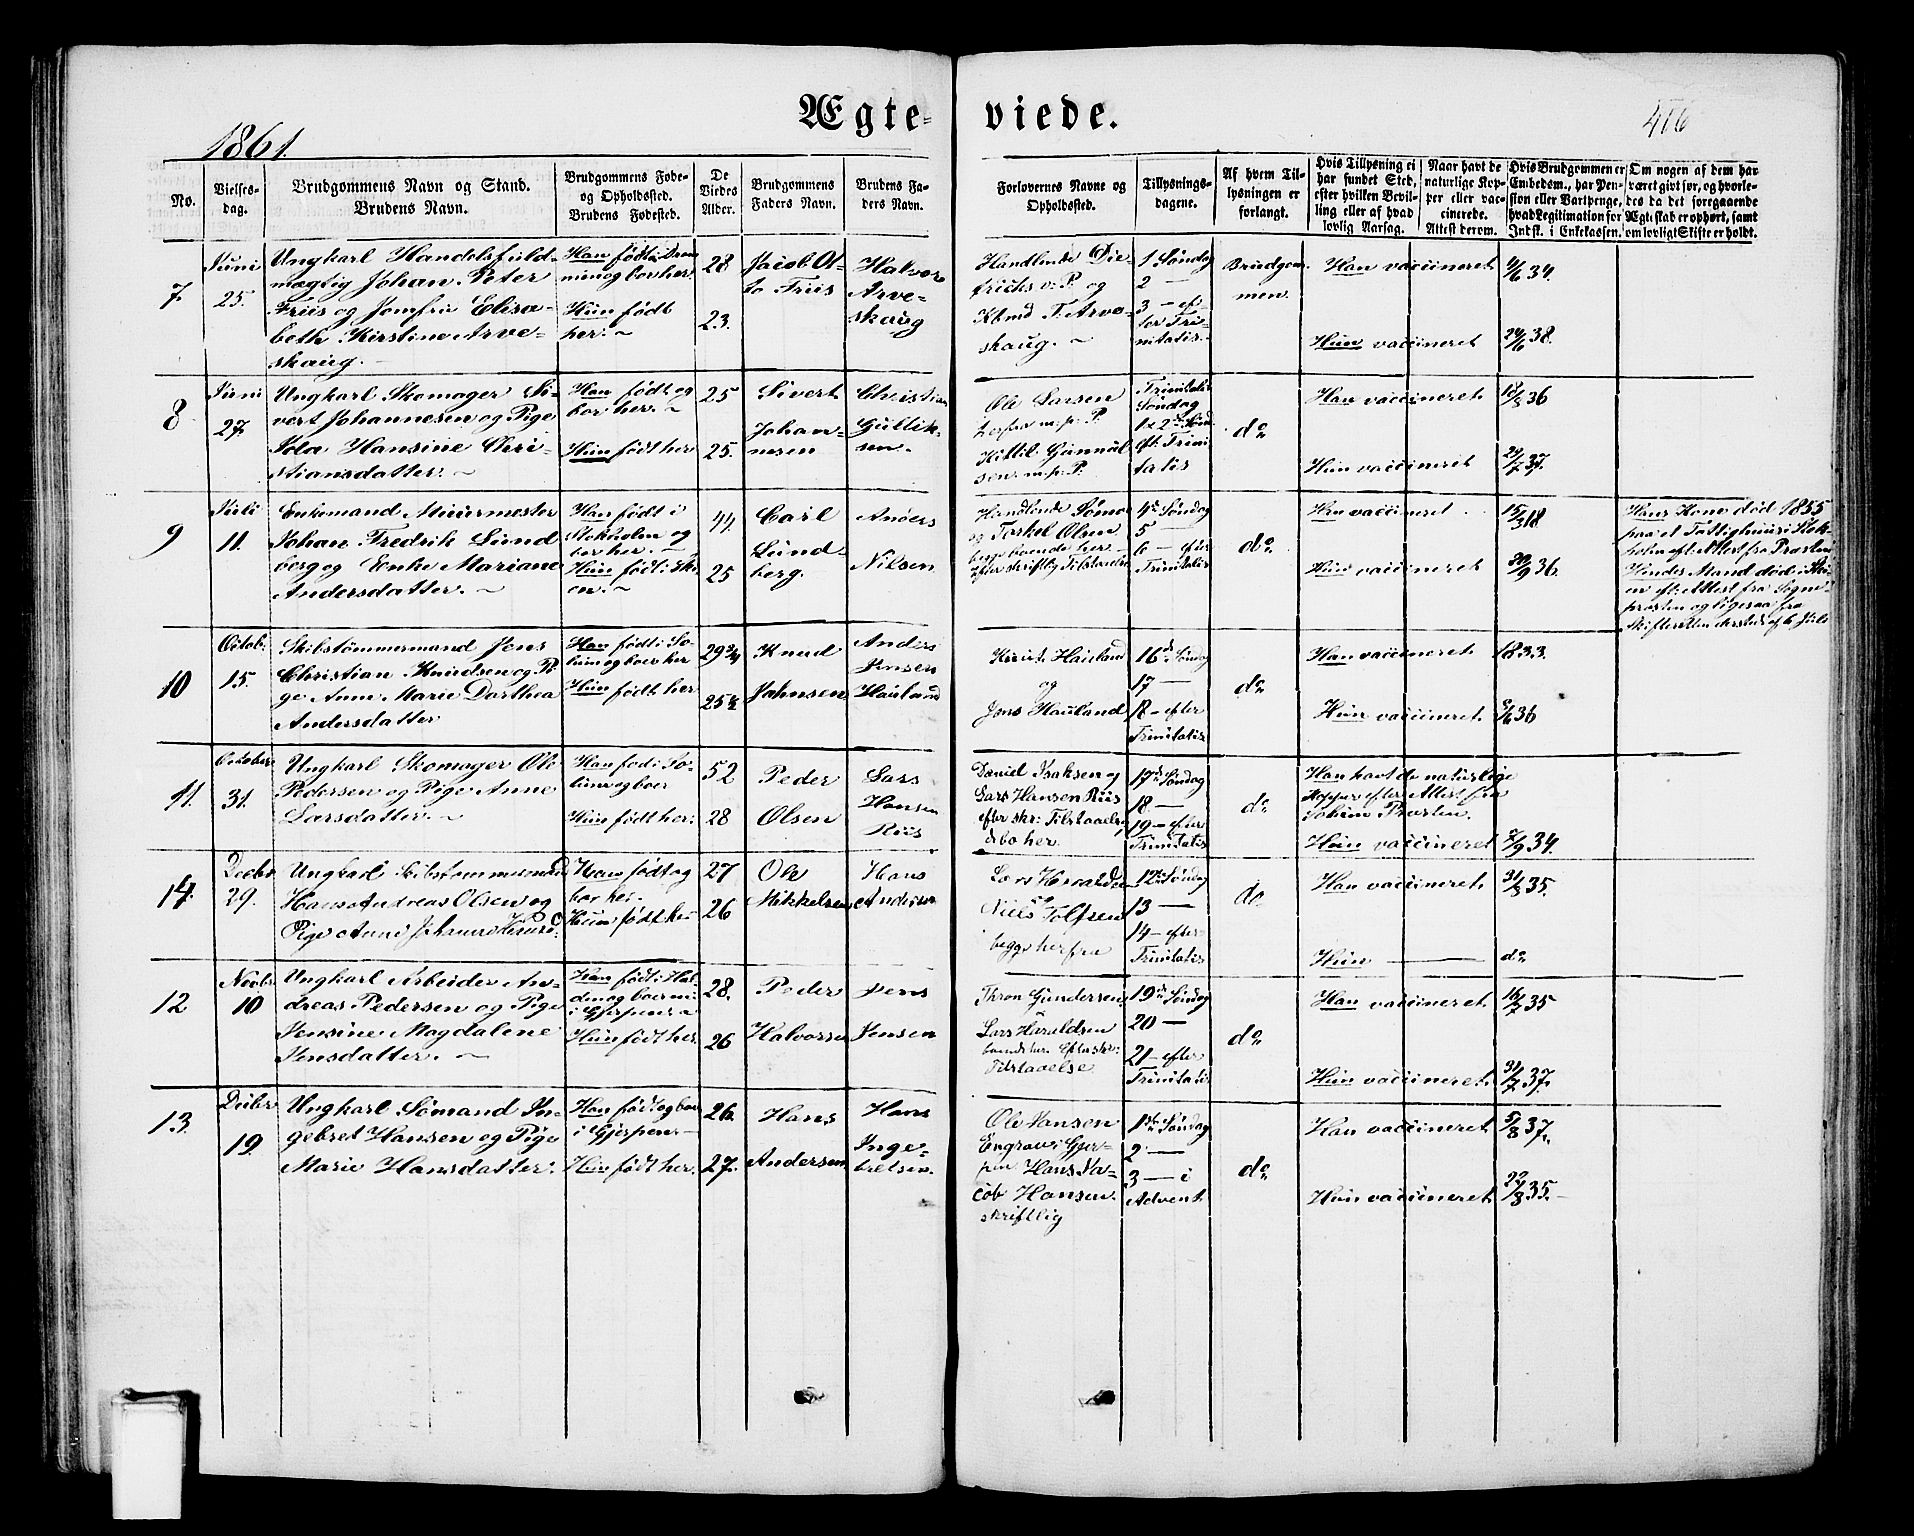 Ægte-viede.
476
1861.
No.
Vielses-
dag.
Brudgommens Navn og Stand.
Brudens Navn.
Brudgommens Føde-
og Opholdssted.
Brudens Fødested.
De
Viedes
Alder.
Brudgommens
Faders Navn.
Brudens Fa-
ders Navn.
Forlovernes Navne og
Opholdssted.
Tillysnings-
dagene.
Af hvem Til-
lysningen er
forlangt.
Hvis Tillysning ei
har fundet Sted,
efter hvilken Bevil-
ling eller af hvad
lovlig Aarsag.
Naar havt de
naturlige Kop-
per eller vac-
cinerede.
Attest derom.
Hvis Brudgommen er
Embedsm., har Pen-
sion eller Vartpenge,
hvad Legitimation for
Indsk. i Enkekassen.
Om nogen af dem har
været givt før, og hvorle-
des da det foregaaende
Ægteskab er ophørt, samt
om lovligt Skifte er holdt.
7
Juni
25.
Ungkarl Handelsfuld-
mægtig Johan Peter
Friis og Jomfru Elisa-
beth Kirstine Arve-
skaug.
Han født i Dram
men og bor her.
Hun født
her.
28
23.
Jacob Ot-
to Friis
Halvor
Arve-
skaug
Handlende Die-
trichs og
T. Arve-
skaug.
1 Søndag
2 —
3 — ef-
ter Tri-
nitatis.
Brudgom-
men.
Han vaccineret
4/6 34.
Hun vaccineret
24/6 38.
8
Juni
27.
Ungkarl Skomager Si-
vert Johannesen og Pige
Hansine Chri-
stiansdatter.
Han født og
bor her.
Hun født her
25
25.
Sivert
Johan-
nesen
Christian
Gullik-
sen.
Ole Larsen
m.p.P.
Kittil Gunnul-
sen m.p.P.
Trinitatis
Søndag
1 & 2den Sønd
eft. Trini
tatis
do
Han vaccineret
18/8 36
Hun vaccineret
29/7 37.
9
Juli
11.
Enkemand Muurmester
Johan Fredrik Lund
berg og Enke Mariane
Andersdatter.
Han født i
Stokholm og
bor her.
Hun født i Ski
en.
44
25
Carl
Lund-
berg.
Anders
Nilsen
Handlende
og Torkel Olsen
begge boende her
efter skriftlig Tilstaaelse
4de Søndag
5
6 — efter
Trinitatis
do
Han vaccineret
15/3 18
Hun vaccineret
30/9 36.
Hans Kone død 1855
paa et Fattighuus i Stok-
holm eft. Attest fra Prosten
Hendes Mand død i Ski
en eft. Attest fra Sogne-
prosten og ligesaa fra
Skifteretten dersteds af 6 Juli
10
Octob.
15.
Skibstømmermand Jens
Christian Knudsen og Pi
ge Anne Marie Dorthea
Andersdatter
Han født i So-
lum og boer her
Hun født her
29 3/4
25 1/2
Knud
Jahnsen
Anders
Jensen
Haukand
Knut Hauland
og
Jens Hauland
16de Søndag
17 —
18 — efter
Trinitatis
do
Han vaccineret
1833.
Hun vaccineret
36
11.
October
31.
Ungkarl Skomager Ole
Pedersen og Pige Anne
Larsdatter.
Han fød i So-
lum og boer
Hun født her.
52
28
Peder
Olsen
Lars
Hansen
Riis
Daniel Isaksen og
Lars Hansen Riis
efter skr: Tilstaaelse
& bo her.
17de Søndag
18 —
19 — efter
Trinitatis
do
Han havt de naturlige
Kopper efter Attest fra
Solum Præsten.
Hun vaccineret
7/9 34.
14.
Decbr
29.
Ungkarl Skibstømmermand
Hans Andreas Olsen og
Pige Anne Johanne
Han født og
bor her.
Hun født her
27
26
Ole
Mikkelsen
Hans
Andersen
Lars Haralds
og
Niels Tolfsen
begge herfra
12te Søndag
13 —
14 — efter
Trinitatis
do
Han vaccineret
31/8 35.
Hun —
do
12
Novbr.
10
Ungkarl Arbeider An-
dreas Pedersen og Pige
Jensine Magdalene
Jensdatter.
Han født i Hal
den og boer nu
i Gjerpen
Hun født her.
28.
26
Peder
Halvorsen
Jens
Jensen
Thron Gundersen
Lars Haraldsen
boende her. Efter skr:
Tilstaaelse
19de Søndag
20 —
21 — efter
Trinitatis
do
Han vaccineret
16/7 35
Hun vaccineret
31/7 37.
13.
Decbr
19.
Ungkarl Sømand In-
gebret Hansen og Pige
Marie Hansdatter.
Han født og bor
i Gjerpen
Hun født her.
26.
27.
Hans
Andersen
Hans
Inge-
bretsen.
Ole Jansen
Engrav i Gjer-
pen Hans Ja-
cob Hansen
skriftlig
1ste Søndag
2 —
3 — i
Advent.
do
Han vaccineret
5/8 37.
Hun vaccineret
22/8 35.